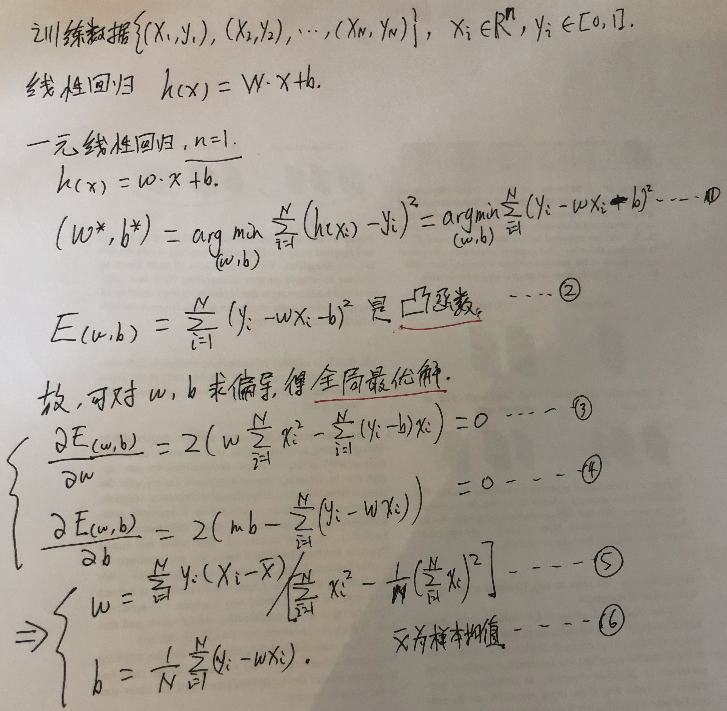 训练数据{(X₁,y₁), (X₂,y₂), ⋯, (X_N, y_N)}, x_i∈R^n, y_i∈[0,1].
线性回归 h(x) = W·x+b.
一元线性回归, n=1.
h(x) = w·x+b.
(w*, b*) = arg min_(w,b) ∑_{i=1}^N (h(x_i) - y_i)² = arg min_(w,b) ∑_{i=1}^N (y_i - wx_i - b)² ---- ①
E(w,b) = ∑_{i=1}^N (y_i - wx_i - b)² 是 凸函数. ---- ②
故, 可对 w, b 求偏导, 得 全局最优解.
∂E(w,b)/∂w = 2(w ∑_{i=1}^N x_i² - ∑_{i=1}^N (y_i - b)x_i) = 0 ---- ③
∂E(w,b)/∂b = 2(mb - ∑_{i=1}^N (y_i - wx_i)) = 0 ---- ④
⇒ w = ∑_{i=1}^N y_i(x_i - x̄) / [∑_{i=1}^N x_i² - 1/N (∑_{i=1}^N x_i)²] ----- ⑤
b = 1/N ∑_{i=1}^N (y_i - wx_i). x̄为样本均值 ----- ⑥